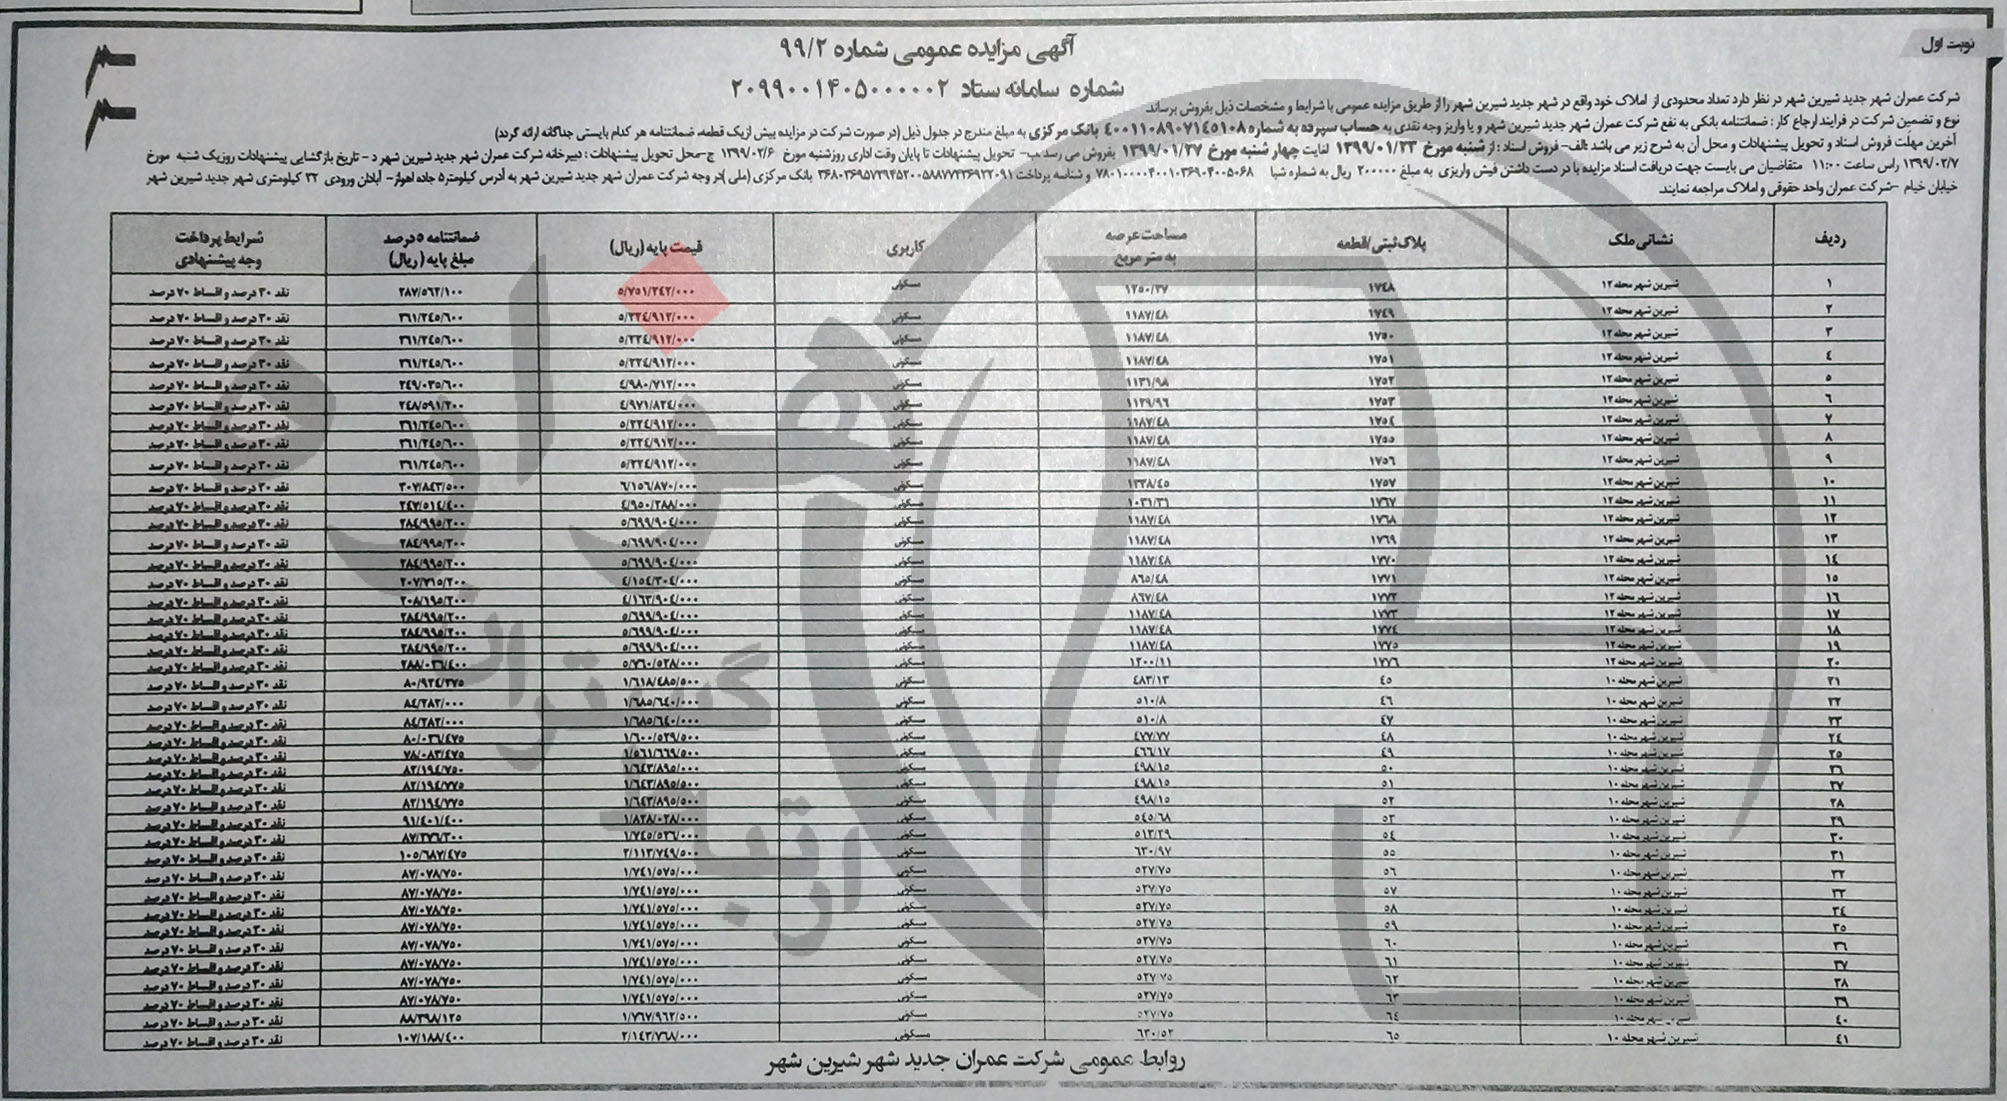 نوبت اول
آگهی مزایده عمومی شماره ۹۹/۲
شماره سامانه ستاد ۲۰۹۹۰۰۱۴۰۵۰۰۰۰۰۲
شرکت عمران شهر جدید شیرین شهر در نظر دارد تعداد محدودی از املاک خود واقع در شهر جدید شیرین شهر را از طریق مزایده عمومی با شرایط و مشخصات ذیل بفروش برساند.
نوع و تضمین شرکت در فرایند ارجاع کار : ضمانتنامه بانکی به نفع شرکت عمران شهر جدید شیرین شهر و یا واریز وجه نقدی به حساب سپرده به شماره ۴۰۰۱۱۰۸۹۰۷۱۴۵۱۰۸ بانک مرکزی به مبلغ مندرج در جدول ذیل (در صورت شرکت در مزایده بیش از یک قطعه، ضمانتنامه هر کدام بایستی جداگانه ارائه گردد)
آخرین مهلت فروش اسناد و تحویل پیشنهادات و محل آن به شرح زیر می باشد الف- فروش اسناد : از شنبه مورخ ۱۳۹۹/۰۱/۲۳ لغایت چهار شنبه مورخ ۱۳۹۹/۰۱/۲۷ بفروش می رسد ب- تحویل پیشنهادات تا پایان وقت اداری روز شنبه مورخ ۱۳۹۹/۰۲/۶ ج-محل تحویل پیشنهادات : دبیرخانه شرکت عمران شهر جدید شیرین شهر د - تاریخ بازگشایی پیشنهادات روز یک شنبه مورخ
۱۳۹۹/۰۲/۷ راس ساعت ۱۱:۰۰ متقاضیان می بایست جهت دریافت اسناد مزایده با در دست داشتن فیش واریزی به مبلغ ۲۰۰۰۰۰۰ ریال به شماره شبا و شناسه پرداخت بانک مرکزی (ملی) در وجه شرکت عمران شهر جدید شیرین شهر به آدرس کیلومتر۵ جاده اهواز- آبادان ورودی ۲۲ کیلومتری شهر جدید شیرین شهر
خیابان خیام -شرکت عمران واحد حقوقی و املاک مراجعه نمایند.
ردیف نشانی ملک پلاک ثبتی/قطعه مساحت عرصه به متر مربع کاربری قیمت پایه (ریال) ضمانتنامه ۵ درصد مبلغ پایه (ریال) شرایط پرداخت وجه پیشنهادی
۱ شیرین شهر محله ۱۲ ۱۷۴۸ مسکونی ۲۸۷/۵۶۲/۱۰۰ نقد ۳۰ درصد و اقساط ۷۰ درصد
۲ شیرین شهر محله ۱۲ ۱۷۴۹ ۱۱۸۷/۴۸ مسکونی ۵/۲۲۴/۹۱۲/۰۰۰ ۲۶۱/۲۴۵/۶۰۰ نقد ۳۰ درصد و اقساط ۷۰ درصد
۳ شیرین شهر محله ۱۲ ۱۷۵۰ ۱۱۸۷/۴۸ مسکونی ۵/۲۲۴/۹۱۲/۰۰۰ ۲۶۱/۲۴۵/۶۰۰ نقد ۳۰ درصد و اقساط ۷۰ درصد
۴ شیرین شهر محله ۱۲ ۱۷۵۱ ۱۱۸۷/۴۸ مسکونی ۵/۲۲۴/۹۱۲/۰۰۰ ۲۶۱/۲۴۵/۶۰۰ نقد ۳۰ درصد و اقساط ۷۰ درصد
۵ شیرین شهر محله ۱۲ ۱۷۵۲ ۱۱۳۱/۹۸ مسکونی ۴/۹۸۰/۷۱۲/۰۰۰ ۲۴۹/۰۳۵/۶۰۰ نقد ۳۰ درصد و اقساط ۷۰ درصد
۶ شیرین شهر محله ۱۲ ۱۷۵۳ ۱۱۲۹/۹۶ مسکونی ۴/۹۷۱/۸۲۴/۰۰۰ ۲۴۸/۵۹۱/۲۰۰ نقد ۳۰ درصد و اقساط ۷۰ درصد
۷ شیرین شهر محله ۱۲ ۱۷۵۴ ۱۱۸۷/۴۸ مسکونی ۵/۲۲۴/۹۱۲/۰۰۰ ۲۶۱/۲۴۵/۶۰۰ نقد ۳۰ درصد و اقساط ۷۰ درصد
۸ شیرین شهر محله ۱۲ ۱۷۵۵ ۱۱۸۷/۴۸ مسکونی ۵/۲۲۴/۹۱۲/۰۰۰ ۲۶۱/۲۴۵/۶۰۰ نقد ۳۰ درصد و اقساط ۷۰ درصد
۹ شیرین شهر محله ۱۲ ۱۷۵۶ ۱۱۸۷/۴۸ مسکونی ۵/۲۲۴/۹۱۲/۰۰۰ ۲۶۱/۲۴۵/۶۰۰ نقد ۳۰ درصد و اقساط ۷۰ درصد
۱۰ شیرین شهر محله ۱۲ ۱۷۵۷ ۱۳۳۸/۴۵ مسکونی ۶/۱۵۶/۸۷۰/۰۰۰ ۳۰۷/۸۴۳/۵۰۰ نقد ۳۰ درصد و اقساط ۷۰ درصد
۱۱ شیرین شهر محله ۱۲ ۱۷۶۷ ۱۰۳۱/۳۱ مسکونی ۴/۹۵۰/۲۸۸/۰۰۰ ۲۴۷/۵۱۴/۴۰۰ نقد ۳۰ درصد و اقساط ۷۰ درصد
۱۲ شیرین شهر محله ۱۲ ۱۷۶۸ ۱۱۸۷/۴۸ مسکونی ۵/۶۹۹/۹۰۴/۰۰۰ ۲۸۴/۹۹۵/۲۰۰ نقد ۳۰ درصد و اقساط ۷۰ درصد
۱۳ شیرین شهر محله ۱۲ ۱۷۶۹ ۱۱۸۷/۴۸ مسکونی ۵/۶۹۹/۹۰۴/۰۰۰ ۲۸۴/۹۹۵/۲۰۰ نقد ۳۰ درصد و اقساط ۷۰ درصد
۱۴ شیرین شهر محله ۱۲ ۱۷۷۰ ۱۱۸۷/۴۸ مسکونی ۵/۶۹۹/۹۰۴/۰۰۰ ۲۸۴/۹۹۵/۲۰۰ نقد ۳۰ درصد و اقساط ۷۰ درصد
۱۵ شیرین شهر محله ۱۲ ۱۷۷۱ ۸۶۵/۴۸ مسکونی ۴/۱۵۴/۳۰۴/۰۰۰ ۲۰۷/۷۱۵/۲۰۰ نقد ۳۰ درصد و اقساط ۷۰ درصد
۱۶ شیرین شهر محله ۱۲ ۱۷۷۲ ۸۶۷/۴۸ مسکونی ۴/۱۶۳/۹۰۴/۰۰۰ ۲۰۸/۱۹۵/۲۰۰ نقد ۳۰ درصد و اقساط ۷۰ درصد
۱۷ شیرین شهر محله ۱۲ ۱۷۷۳ ۱۱۸۷/۴۸ مسکونی ۵/۶۹۹/۹۰۴/۰۰۰ ۲۸۴/۹۹۵/۲۰۰ نقد ۳۰ درصد و اقساط ۷۰ درصد
۱۸ شیرین شهر محله ۱۲ ۱۷۷۴ ۱۱۸۷/۴۸ مسکونی ۵/۶۹۹/۹۰۴/۰۰۰ ۲۸۴/۹۹۵/۲۰۰ نقد ۳۰ درصد و اقساط ۷۰ درصد
۱۹ شیرین شهر محله ۱۲ ۱۷۷۵ ۱۱۸۷/۴۸ مسکونی ۵/۶۹۹/۹۰۴/۰۰۰ ۲۸۴/۹۹۵/۲۰۰ نقد ۳۰ درصد و اقساط ۷۰ درصد
۲۰ شیرین شهر محله ۱۲ ۱۷۷۶ ۱۲۰۰/۱۱ مسکونی ۵/۷۶۰/۵۲۸/۰۰۰ ۲۸۸/۰۲۶/۴۰۰ نقد ۳۰ درصد و اقساط ۷۰ درصد
۲۱ شیرین شهر محله ۱۰ ۴۵ ۴۸۳/۱۳ مسکونی ۱/۶۱۸/۴۸۵/۵۰۰ ۸۰/۹۲۴/۲۷۵ نقد ۳۰ درصد و اقساط ۷۰ درصد
۲۲ شیرین شهر محله ۱۰ ۴۶ ۵۱۰/۸ مسکونی ۱/۶۸۵/۶۴۰/۰۰۰ ۸۴/۲۸۲/۰۰۰ نقد ۳۰ درصد و اقساط ۷۰ درصد
۲۳ شیرین شهر محله ۱۰ ۴۷ ۵۱۰/۸ مسکونی ۱/۶۸۵/۶۴۰/۰۰۰ ۸۴/۲۸۲/۰۰۰ نقد ۳۰ درصد و اقساط ۷۰ درصد
۲۴ شیرین شهر محله ۱۰ ۴۸ ۴۷۷/۷۷ مسکونی ۱/۶۰۰/۵۲۹/۵۰۰ ۸۰/۰۲۶/۴۷۵ نقد ۳۰ درصد و اقساط ۷۰ درصد
۲۵ شیرین شهر محله ۱۰ ۴۹ ۴۶۶/۱۷ مسکونی ۱/۵۶۱/۶۶۹/۵۰۰ ۷۸/۰۸۳/۴۷۵ نقد ۳۰ درصد و اقساط ۷۰ درصد
۲۶ شیرین شهر محله ۱۰ ۵۰ ۴۹۸/۱۵ مسکونی ۱/۶۴۳/۸۹۵/۰۰۰ ۸۲/۱۹۴/۷۵۰ نقد ۳۰ درصد و اقساط ۷۰ درصد
۲۷ شیرین شهر محله ۱۰ ۵۱ ۴۹۸/۱۵ مسکونی ۱/۶۴۳/۸۹۵/۵۰۰ ۸۲/۱۹۴/۷۷۵ نقد ۳۰ درصد و اقساط ۷۰ درصد
۲۸ شیرین شهر محله ۱۰ ۵۲ ۴۹۸/۱۵ مسکونی ۱/۶۴۳/۸۹۵/۵۰۰ ۸۲/۱۹۴/۷۷۵ نقد ۳۰ درصد و اقساط ۷۰ درصد
۲۹ شیرین شهر محله ۱۰ ۵۳ ۵۴۵/۶۸ مسکونی ۱/۸۲۸/۰۲۸/۰۰۰ ۹۱/۴۰۱/۴۰۰ نقد ۳۰ درصد و اقساط ۷۰ درصد
۳۰ شیرین شهر محله ۱۰ ۵۴ ۵۱۳/۲۹ مسکونی ۱/۷۴۵/۵۲۶/۰۰۰ ۸۷/۲۷۶/۳۰۰ نقد ۳۰ درصد و اقساط ۷۰ درصد
۳۱ شیرین شهر محله ۱۰ ۵۵ ۶۳۰/۹۷ مسکونی ۲/۱۱۳/۷۴۹/۵۰۰ ۱۰۵/۶۸۷/۴۷۵ نقد ۳۰ درصد و اقساط ۷۰ درصد
۳۲ شیرین شهر محله ۱۰ ۵۶ ۵۲۷/۷۵ مسکونی ۱/۷۴۱/۵۷۵/۰۰۰ ۸۷/۰۷۸/۷۵۰ نقد ۳۰ درصد و اقساط ۷۰ درصد
۳۳ شیرین شهر محله ۱۰ ۵۷ ۵۲۷/۷۵ مسکونی ۱/۷۴۱/۵۷۵/۰۰۰ ۸۷/۰۷۸/۷۵۰ نقد ۳۰ درصد و اقساط ۷۰ درصد
۳۴ شیرین شهر محله ۱۰ ۵۸ ۵۲۷/۷۵ مسکونی ۱/۷۴۱/۵۷۵/۰۰۰ ۸۷/۰۷۸/۷۵۰ نقد ۳۰ درصد و اقساط ۷۰ درصد
۳۵ شیرین شهر محله ۱۰ ۵۹ ۵۲۷/۷۵ مسکونی ۱/۷۴۱/۵۷۵/۰۰۰ ۸۷/۰۷۸/۷۵۰ نقد ۳۰ درصد و اقساط ۷۰ درصد
۳۶ شیرین شهر محله ۱۰ ۶۰ ۵۲۷/۷۵ مسکونی ۱/۷۴۱/۵۷۵/۰۰۰ ۸۷/۰۷۸/۷۵۰ نقد ۳۰ درصد و اقساط ۷۰ درصد
۳۷ شیرین شهر محله ۱۰ ۶۱ ۵۲۷/۷۵ مسکونی ۱/۷۴۱/۵۷۵/۰۰۰ ۸۷/۰۷۸/۷۵۰ نقد ۳۰ درصد و اقساط ۷۰ درصد
۳۸ شیرین شهر محله ۱۰ ۶۲ ۵۲۷/۷۵ مسکونی ۱/۷۴۱/۵۷۵/۰۰۰ ۸۷/۰۷۸/۷۵۰ نقد ۳۰ درصد و اقساط ۷۰ درصد
۳۹ شیرین شهر محله ۱۰ ۶۳ ۵۲۷/۷۵ مسکونی ۱/۷۴۱/۵۷۵/۰۰۰ ۸۷/۰۷۸/۷۵۰ نقد ۳۰ درصد و اقساط ۷۰ درصد
۴۰ شیرین شهر محله ۱۰ ۶۴ ۵۲۷/۷۵ مسکونی ۱/۷۶۷/۹۶۲/۵۰۰ ۸۸/۳۹۸/۱۲۵ نقد ۳۰ درصد و اقساط ۷۰ درصد
۴۱ شیرین شهر محله ۱۰ ۶۵ ۶۳۰/۵۲ مسکونی ۲/۱۴۳/۷۶۸/۰۰۰ ۱۰۷/۱۸۸/۴۰۰ نقد ۳۰ درصد و اقساط ۷۰ درصد
روابط عمومی شرکت عمران جدید شهر شیرین شهر
هزاره
ارتباط گستران